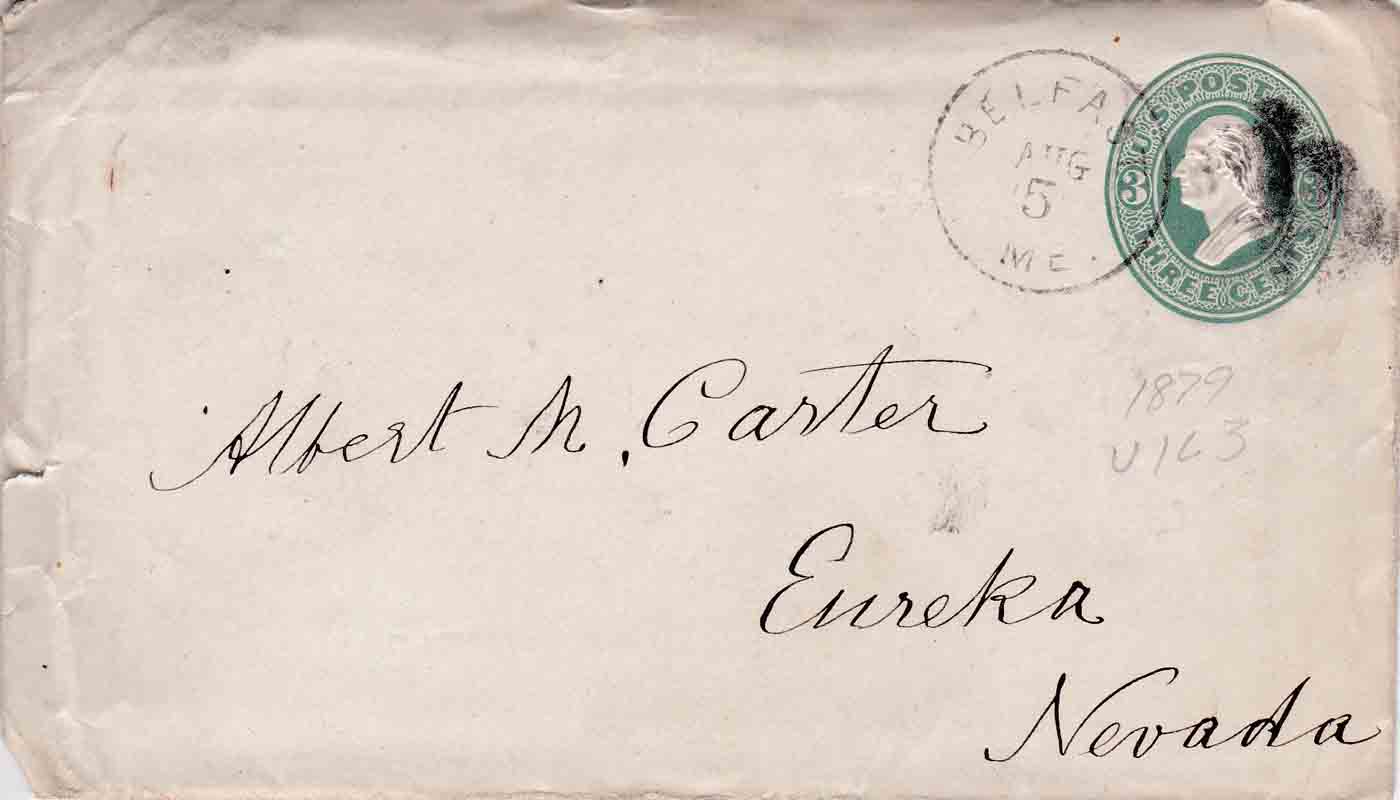 BELFAS
AUG
5
ME.
U.S. POST
3 3
THREE CENTS
1879
U163
Albert M. Carter
Eureka
Nevada